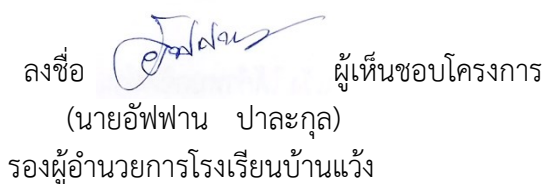 ลงชื่อ อัฟฟาน ผู้เห็นชอบโครงการ
(นายอัฟฟาน ปาละกุล)
รองผู้อำนวยการโรงเรียนบ้านแว้ง